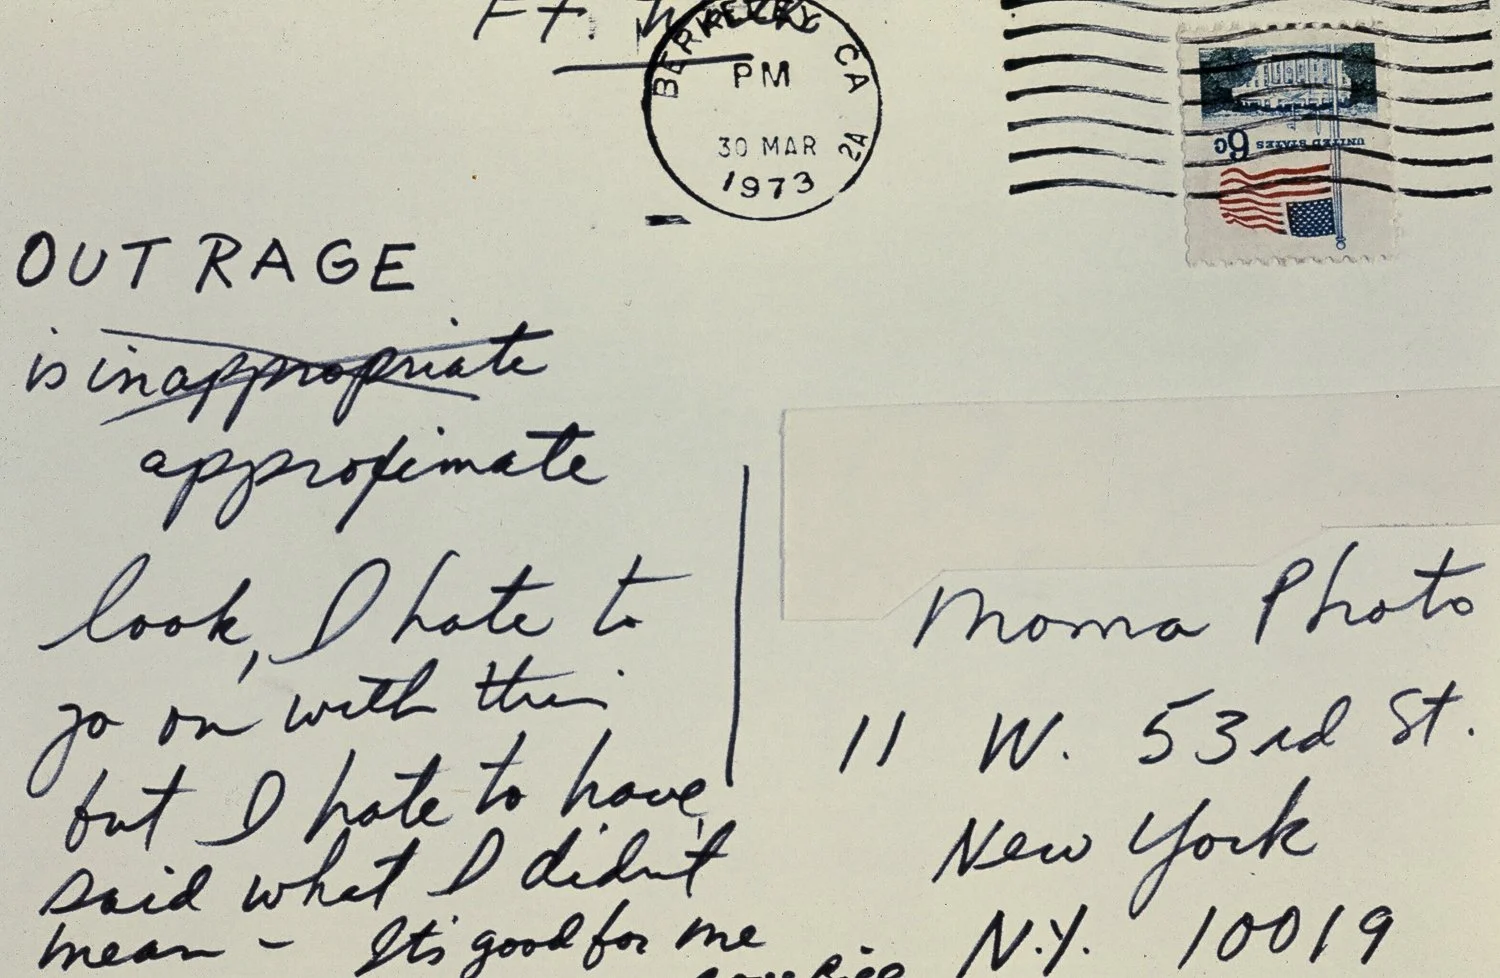 Ft.
BERKELEY CA
PM
30 MAR 2A
1973
UNITED STATES 6c
OUTRAGE
is inappropriate
approximate
look, I hate to
go on with this
but I hate to have,
said what I didn't
mean - It's good for me
Moma Photo
11 W. 53rd St.
New York
N.Y. 10019